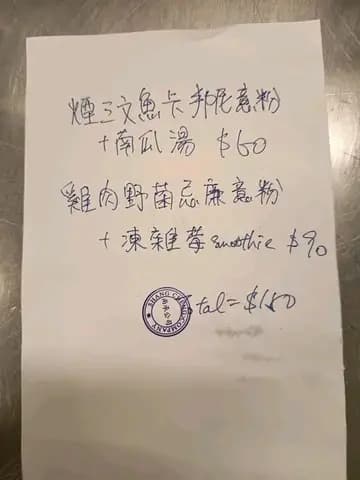 煙三文魚卡邦尼意粉
+南瓜湯 $60
雞肉野菌忌廉意粉
+凍雜莓 smoothie $90
Total = $150
SHANG COMPANY